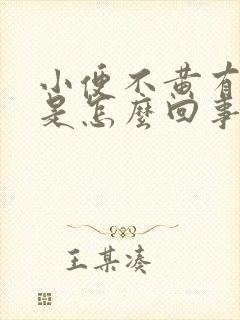 小便不黄有
是怎麼回事
王某湊